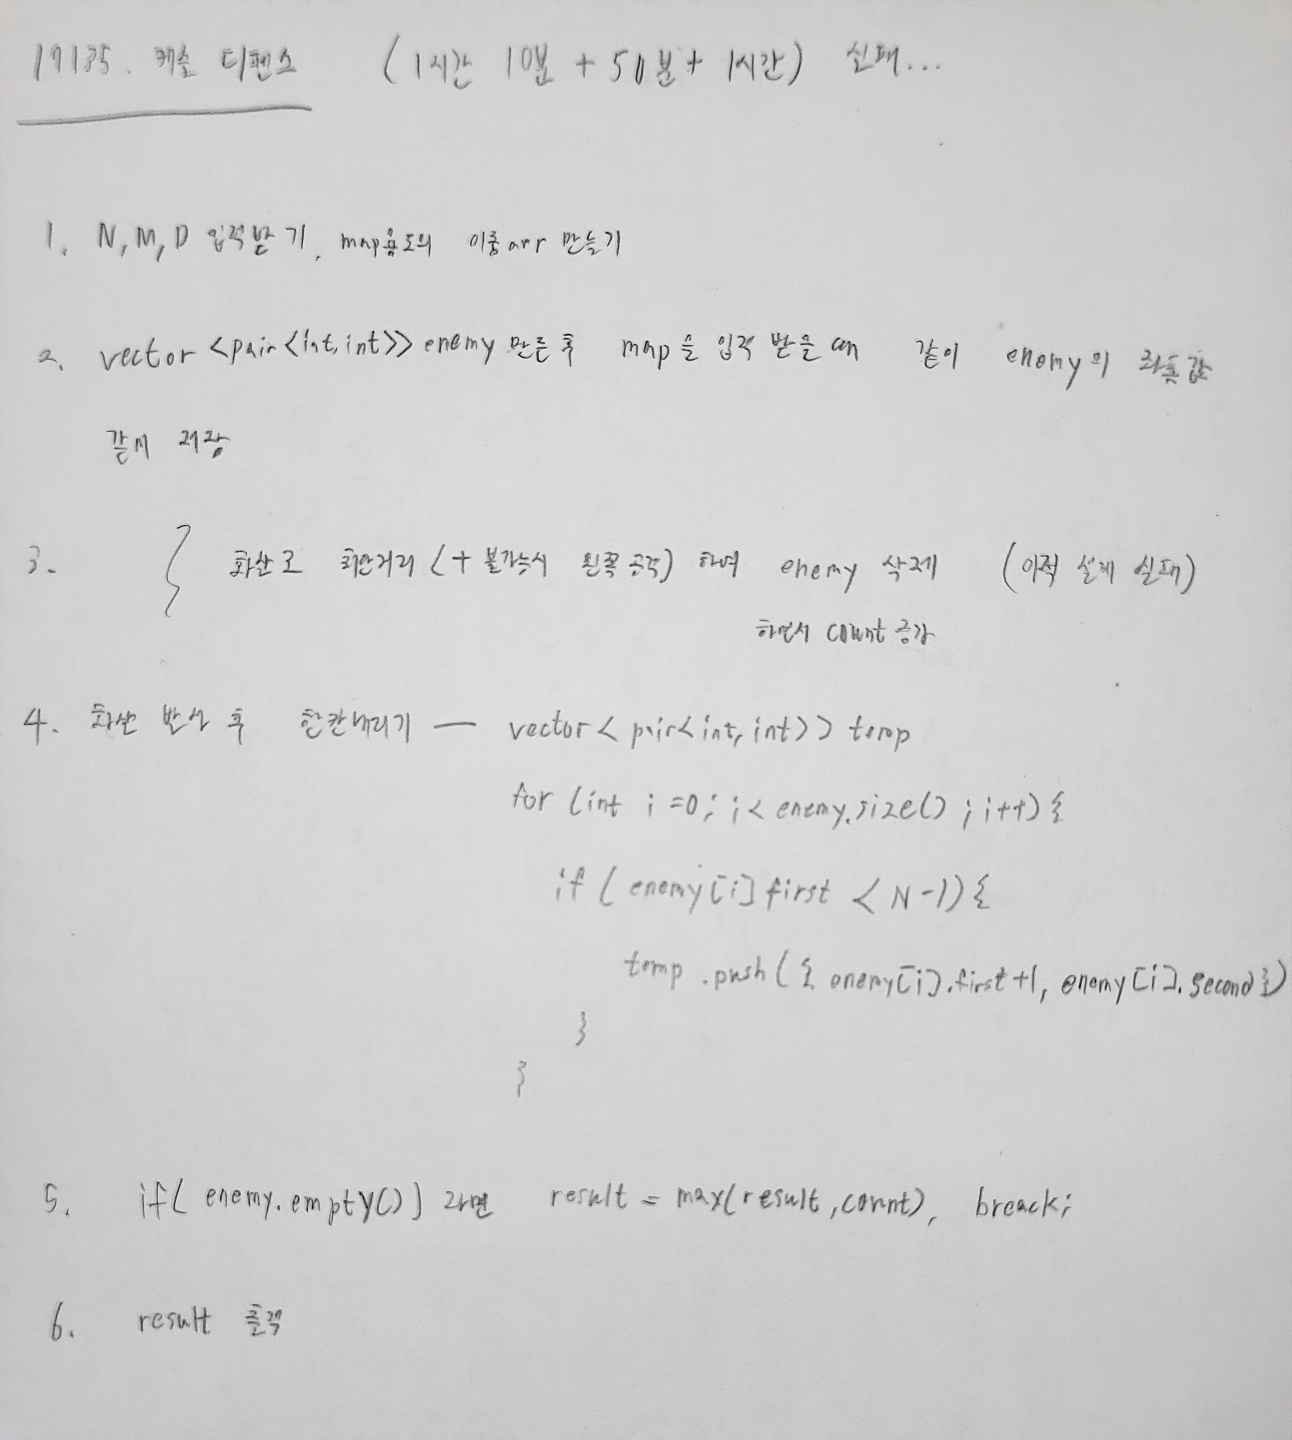 17135. 캐슬 디펜스 (1시간 10분 + 50분 + 1시간) 실패...
1. N, M, D 입력받기, map용도의 이중arr 만들기
2. vector <pair<int, int>> enemy 만든 후 map을 입력 받을 때 같이 enemy의 좌표값
같이 저장
3. { 화살로 최단거리 (+ 불가능시 왼쪽 공격) 하여 enemy 삭제 (아직 설계 실패)
하면서 count 증가
4. 화살 발사 후 한칸내리기 — vector< pair<int, int>> temp
for (int i =0; i< enemy.size() ; i++) {
if ( enemy[i] first < N-1) {
temp .push ( { enemy[i].first+1, enemy[i].second })
}
}
5. if( enemy.empty()) 라면 result = max(result, count), breack;
6. result 출력